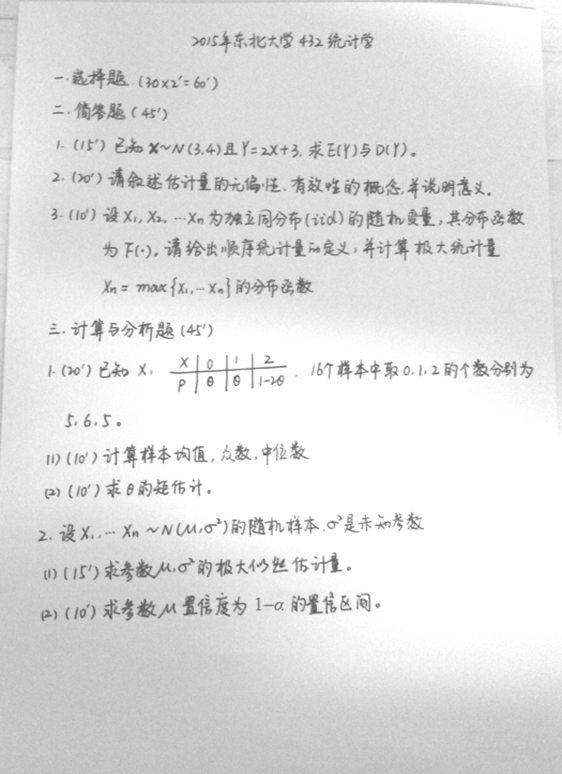 2015年东北大学 432 统计学
一.选择题.(30×2'=60')
二.简答题(45')
1.(15')已知 X~N(3,4)且Y=2X+3,求E(Y)与D(Y)。
2.(20')请叙述估计量的无偏性、有效性的概念,并说明意义。
3.(10')设X₁,X₂,…Xn为独立同分布(iid)的随机变量,其分布函数
为F(·),请给出顺序统计量的定义,并计算极大统计量
Xn=max{X₁,…Xn}的分布函数
三.计算与分析题(45')
1.(20')已知 X, X | 0 | 1 | 2 , 16个样本中取0.1.2的个数分别为
P | θ | θ | 1-2θ
5,6,5。
(1)(10')计算样本均值,众数,中位数
(2)(10')求θ的矩估计。
2.设X₁,…Xn~N(μ,σ²)的随机样本.σ²是未知参数
(1)(15')求参数μ,σ²的极大似然估计量。
(2)(10')求参数μ置信度为1-α的置信区间。